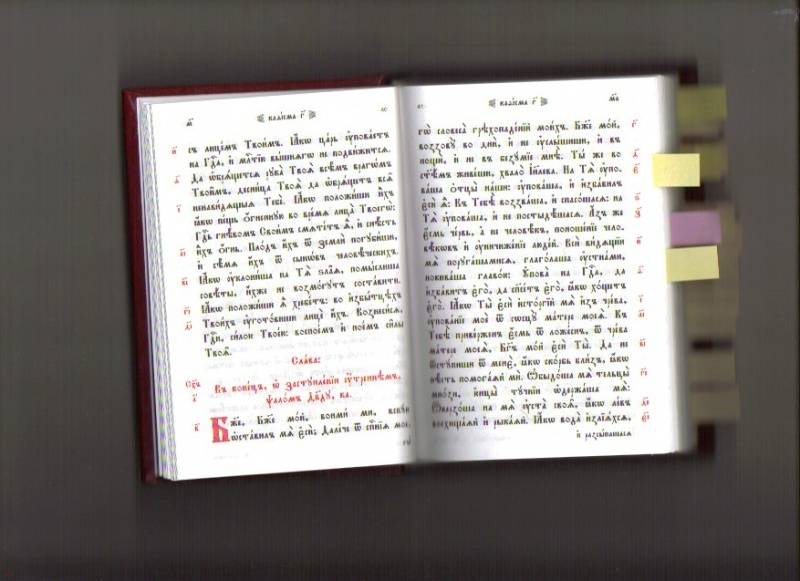 м҃ каѳі́сма г҃
съ лице́мъ Твои́мъ. Ꙗ҆́кѡ ца́рь ᲂу҆пова́етъ
на Гдⷭ҇а, и҆ ма́тїю вы́шнѧгѡ не подви́житсѧ.
Да ѡ҆брѧ́щетсѧ рꙋка̀ Твоѧ̀ всѣ̑мъ врагѡ́мъ
Твои̑мъ, десни́ца Твоѧ̀ да ѡ҆брѧ́щетъ всѧ̑
ненави́дѧщыѧ Тебѐ. Ꙗ҆́кѡ положи́ши и҆̀хъ
ꙗ҆́кѡ пе́щь ѻ҆́гненнꙋю во вре́мѧ лица̀ Твоегѡ̀:
Гдⷭ҇ь гнѣ́вомъ Свои́мъ смѧте́тъ ѧ҆̀, и҆ снѣ́сть
и҆̀хъ ѻ҆́гнь. Пло́дъ и҆́хъ ѿ землѝ погꙋби́ши,
и҆ сѣ́мѧ и҆́хъ ѿ сынѡ́въ человѣ́ческихъ.
Ꙗ҆́кѡ ᲂу҆клони́ша на Тѧ̀ ѕла̑ѧ, помы́слиша
совѣ́ты, и҆̀хже не возмо́гꙋтъ соста́вити.
Ꙗ҆́кѡ положи́ши ѧ҆̀ хребе́тъ: во и҆збы́тцѣхъ
Твои́хъ ᲂу҆гото́виши лицѐ и҆́хъ. Вознеси́сѧ,
Гдⷭ҇и, си́лою Твое́ю: воспое́мъ и҆ пое́мъ си̑лы
Твоѧ̑.
Сла́ва:
Въ коне́цъ, ѡ҆ застꙋпле́нїи ᲂу҆́треннѣмъ,
ѱало́мъ дв҃дꙋ, ка.
Бж҃е, Бж҃е мо́й, вонми́ ми, вскꙋ́ю
ѡ҆ста́вилъ мѧ̀ є҆сѝ; Дале́че ѿ спⷭ҇е́нїѧ мое-
каѳі́сма г҃ ма҃
гѡ̀ словеса̀ грѣхопаде́нїй мои́хъ. Бж҃е мо́й,
воззовꙋ̀ во днѝ, и҆ не ᲂу҆слы́шиши, и҆ въ
нощѝ, и҆ не въ безꙋ́мїе мнѣ̀. Ты́ же во
ст҃ѣ́мъ живе́ши, хвало̀ і҆и҃лева. На Тѧ̀ ᲂу҆по-
ва́ша ѻ҆тцы̀ на́ши: ᲂу҆пова́ша, и҆ и҆зба́вилъ
є҆сѝ ѧ҆̀: Къ Тебѣ̀ воззва́ша, и҆ спасо́шасѧ: на
Тѧ̀ ᲂу҆пова́ша, и҆ не постыдѣ́шасѧ. А҆́зъ же
є҆́смь че́рвь, а҆ не человѣ́къ, поноше́нїе чело-
вѣ́кѡвъ и҆ ᲂу҆ничиже́нїе люде́й. Всѝ ви́дѧщїи
мѧ̀ порꙋга́шамисѧ, глаго́лаша ᲂу҆стна́ми,
покива́ша главо́ю: Оу҆пова̀ на Гдⷭ҇а, да
и҆зба́витъ є҆го̀, да сп҃се́тъ є҆го̀, ꙗ҆́кѡ хо́щетъ
є҆го̀. Ꙗ҆́кѡ Ты̀ є҆сѝ и҆сто́ргїй мѧ̀ и҆з̾ чре́ва,
ᲂу҆пова́нїе моѐ ѿ сосцꙋ̀ ма́тере моеѧ̀. Къ
Тебѣ̀ приве́рженъ є҆́смь ѿ ложе́снъ, ѿ чре́ва
ма́тере моеѧ̀, Бг҃ъ мо́й є҆сѝ Ты̀. Да не
ѿстꙋ́пиши ѿ менє̀, ꙗ҆́кѡ ско́рбь бли́з̾, ꙗ҆́кѡ
нѣ́сть помога́ѧй ми̑. Ѡ҆быдо́ша мѧ̀ тельцы̀
мно́зи, ю҆нцы̀ тꙋ́чнїи ѡ҆держа́ша мѧ̀:
Ѿверзо́ша на мѧ̀ ᲂу҆ста̀ своѧ̑, ꙗ҆́кѡ ле́въ
восхища́ѧй и҆ рыка́ѧй. Ꙗ҆́кѡ вода̀ и҆злїѧ́хсѧ,
и҆ разсы́пашасѧ